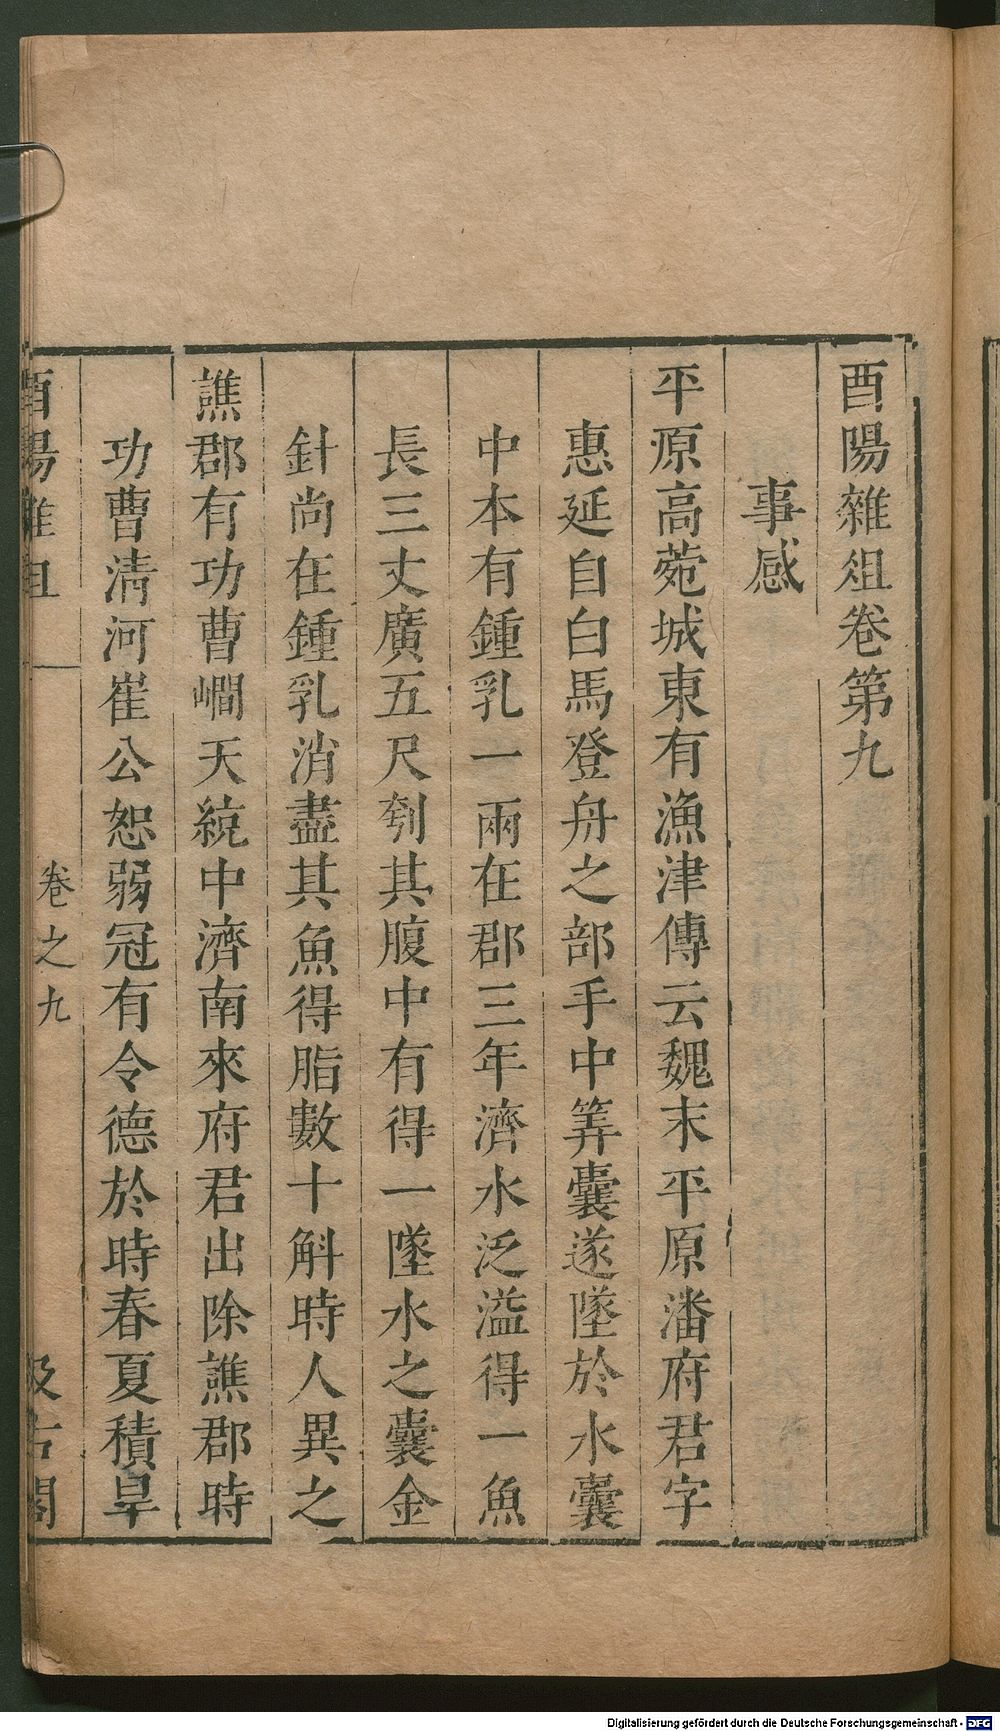 酉陽雜俎卷第九
事感
平原高菀城東有漁津傳云魏末平原潘府君字
惠延自白馬登舟之部手中筭囊遂墜於水囊
中本有鍾乳一兩在郡三年濟水泛溢得一魚
長三丈廣五尺刳其腹中有得一墜水之囊金
針尚在鍾乳消盡其魚得脂數十斛時人異之
譙郡有功曹㵎天統中濟南來府君出除譙郡時
功曹清河崔公恕弱冠有令德於時春夏積旱
酉陽雜俎 卷之九 汲古閣
Digitalisierung gefördert durch die Deutsche Forschungsgemeinschaft - DFG